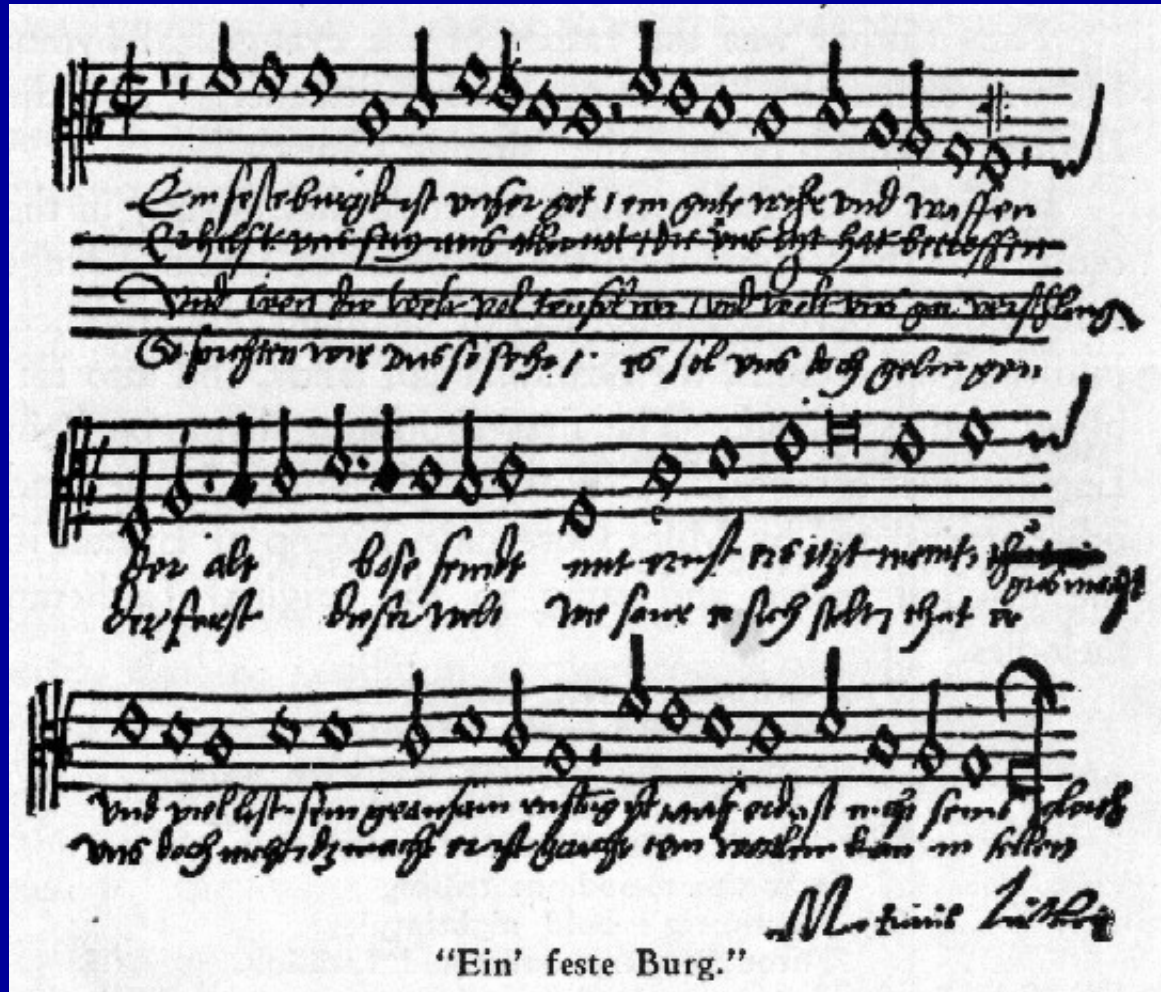 Ein feste burgk ist unser got / ein gute wehr und waffen
Er hilft uns frey aus aller not / die uns itzt hat betroffen
Und wen die welt vol teufel wer / und wolt uns gar verschling
So furchten wir uns so sehr / es sol uns doch gelingen
der alt bose feindt mit ernst ers itzt meint gros macht
der furst dieser welt wie saur er sich stelt / thut er
und viel list sein grausam rustug ist / auf erd ist nicht seins gleich
uns doch nicht dz macht er ist gericht ein wortlin kan in fellen
Martinus Luther
"Ein' feste Burg."